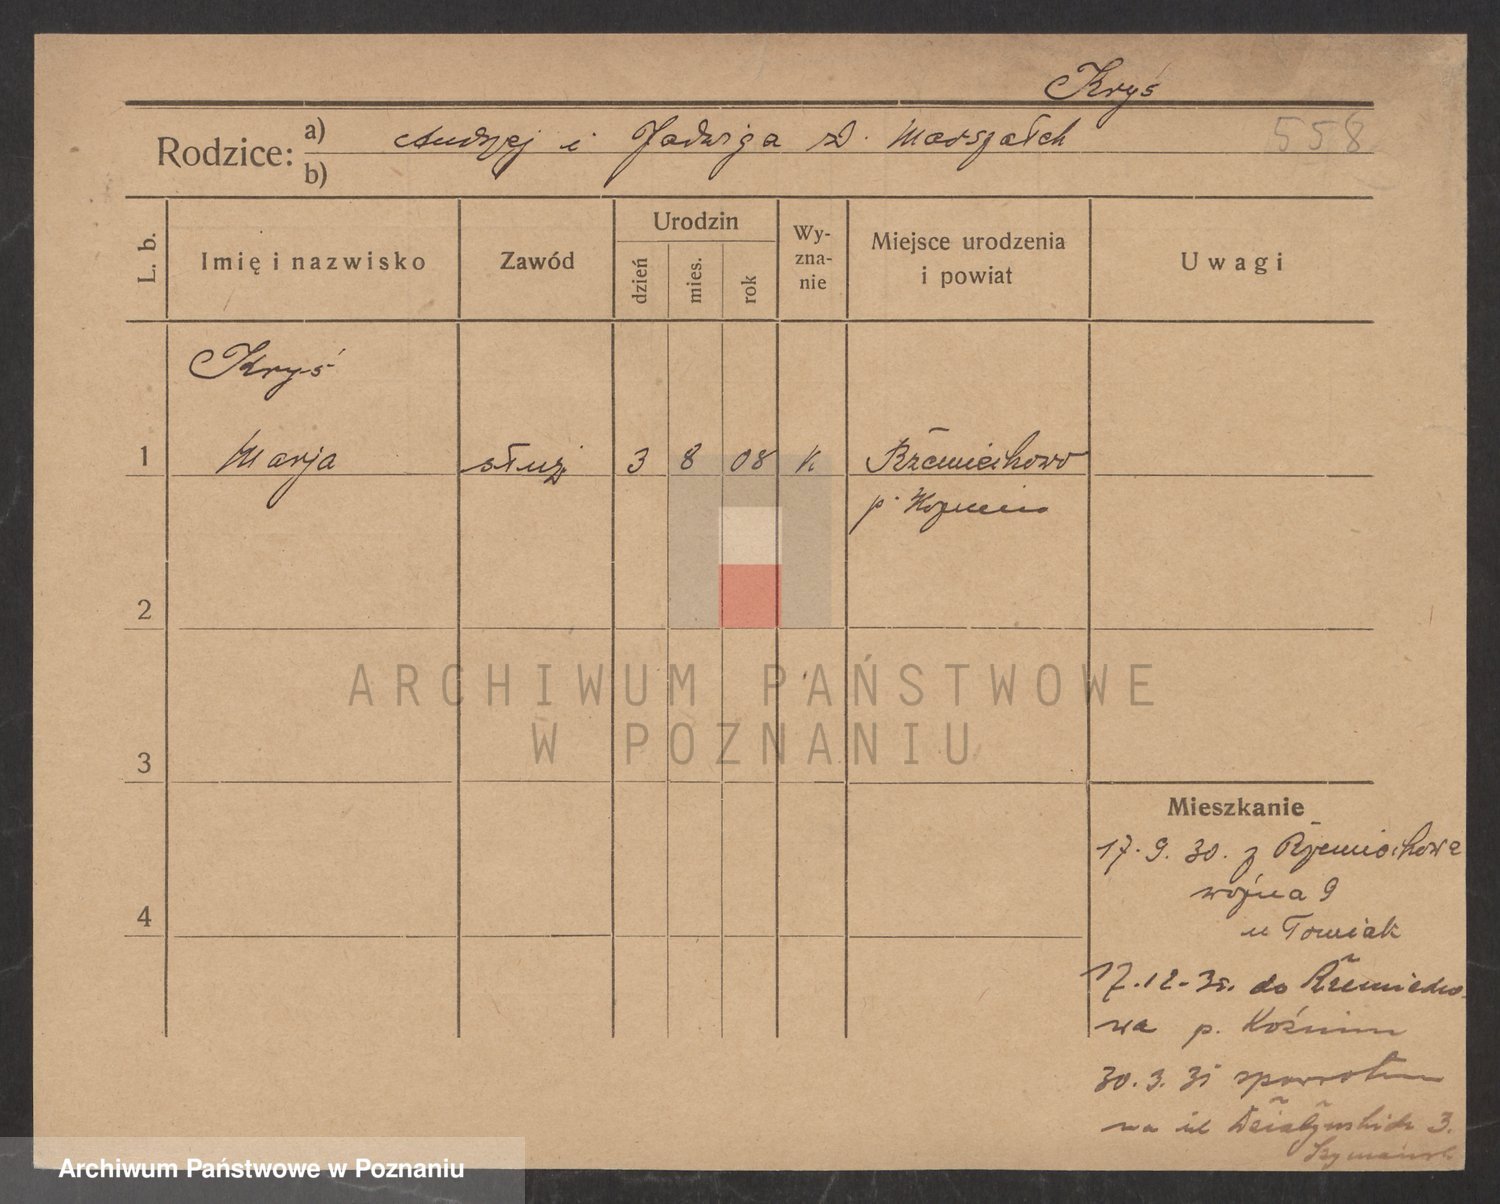 Kryś
Rodzice: a) Andrzej i Jadwiga z d. Marszałek
558
b)
L. b.
Imię i nazwisko
Zawód
Urodzin
dzień
mies.
rok
Wy-
zna-
nie
Miejsce urodzenia
i powiat
Uwagi
Kryś
1 Marja służ 3 8 08 k Rzemiechowo
p. Koźmin
2
ARCHIWUM PAŃSTWOWE
W POZNANIU
3
Mieszkanie
17. 9. 30. z Rzemiechowa
4
9
u Tomiak
17.12.30. do Rzemiecho-
wa p. Koźmin
30. 3. 31 spowrotem
na ul Działyńskich 3.
Archiwum Państwowe w Poznaniu